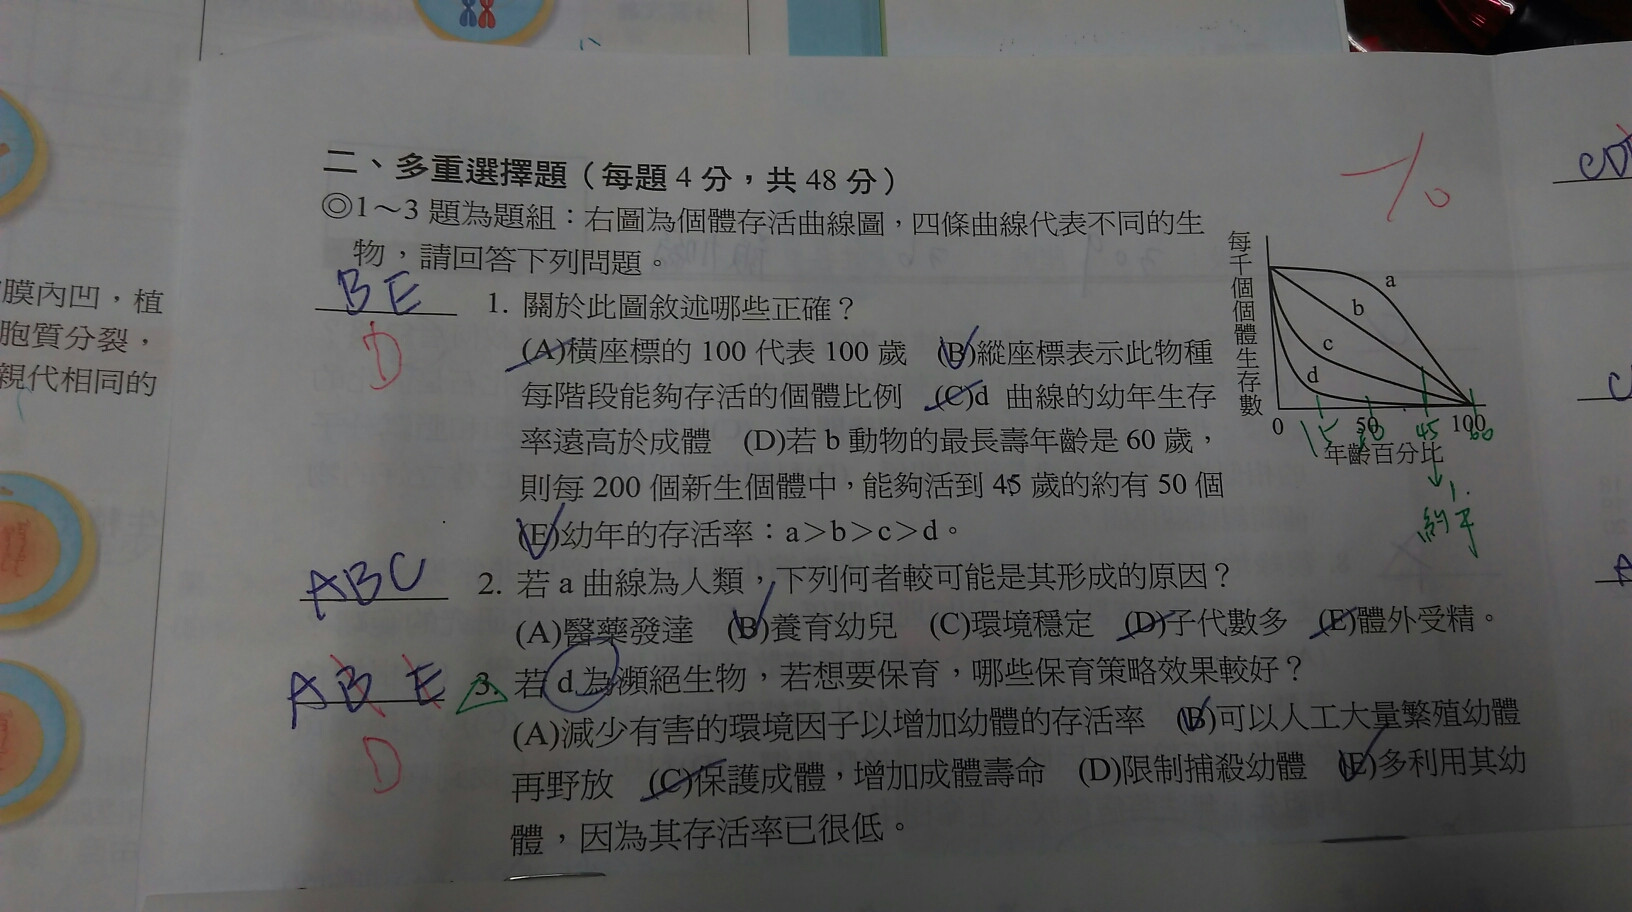 二、多重選擇題（每題 4 分，共 48 分）
◎1～3 題為題組：右圖為個體存活曲線圖，四條曲線代表不同的生
物，請回答下列問題。
BE
D
1. 關於此圖敘述哪些正確？
(A)橫座標的 100 代表 100 歲 (B)縱座標表示此物種
每階段能夠存活的個體比例 (C)d 曲線的幼年生存
率遠高於成體 (D)若 b 動物的最長壽年齡是 60 歲，
則每 200 個新生個體中，能夠活到 45 歲的約有 50 個
(E)幼年的存活率：a＞b＞c＞d。
每千個個體生存數
a
b
c
d
0 50 100
15 45 60
年齡百分比
ABC
2. 若 a 曲線為人類，下列何者較可能是其形成的原因？
(A)醫藥發達 (B)養育幼兒 (C)環境穩定 (D)子代數多 (E)體外受精。
ABE
D
3. 若 d 為瀕絕生物，若想要保育，哪些保育策略效果較好？
(A)減少有害的環境因子以增加幼體的存活率 (B)可以人工大量繁殖幼體
再野放 (C)保護成體，增加成體壽命 (D)限制捕殺幼體 (E)多利用其幼
體，因為其存活率已很低。
膜內凹，植
胞質分裂，
親代相同的